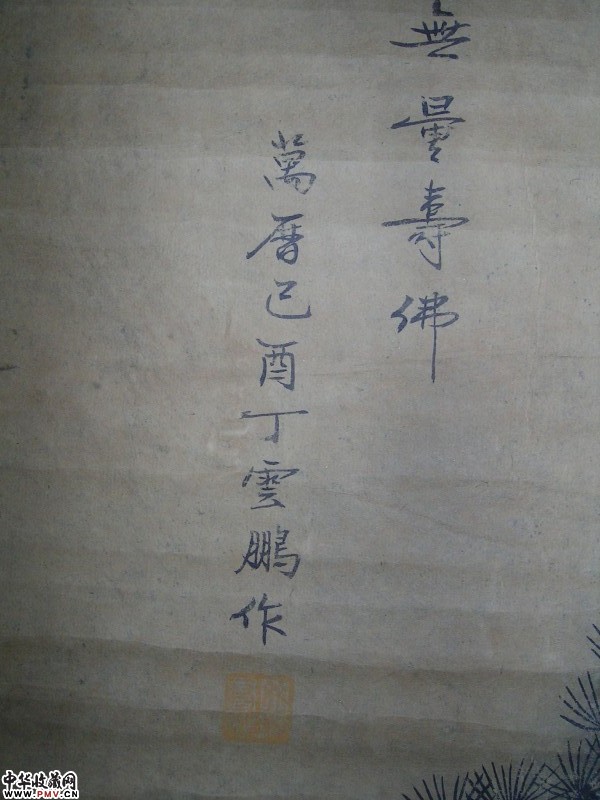 無量壽佛
萬曆己酉丁雲鵬作
中华收藏网
WWW.PMV.CN